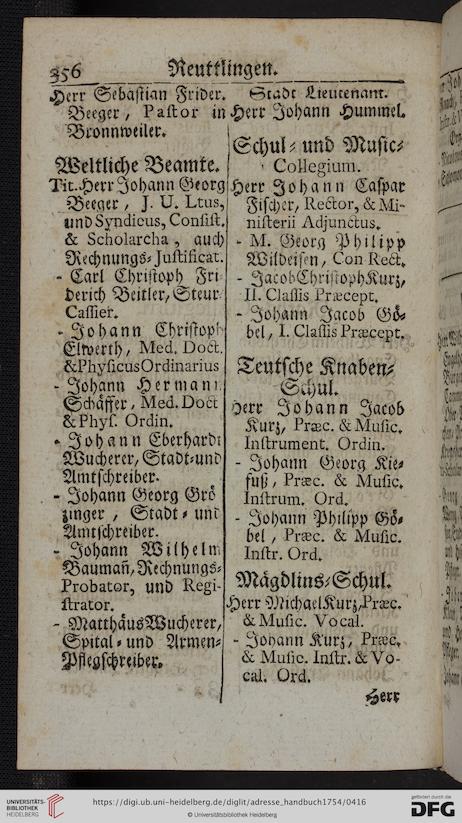 356 Reuttlingen.
Herr Sebastian Frider.
Beeger, Pastor in
Bronnweiler.
Weltliche Beamte.
Tit. Herr Johann Georg
Beeger, J. U. Ltus,
und Syndicus, Consist.
& Scholarcha, auch
Rechnungs-Justificat.
- Carl Christoph Fri
derich Beitler, Steur
Cassier.
- Johann Christoph
Elwerth, Med. Doct.
& Physicus Ordinarius
- Johann Hermann
Schäffer, Med. Doct
& Phys. Ordin.
- Johann Eberhardt
Wucherer, Stadt- und
Amtschreiber.
- Johann Georg Grö
zinger, Stadt- und
Amtschreiber.
- Johann Wilhelm
Baumañ, Rechnungs-
Probator, und Regi-
strator.
- Matthäus Wucherer,
Spital- und Armen-
Pflegschreiber.
Stadt Lieutenant.
Herr Johann Hummel.
Schul- und Music-
Collegium.
Herr Johann Caspar
Fischer, Rector, & Mi-
nisterii Adjunctus.
- M. Georg Philipp
Wildeisen, Con Rect.
- Jacob Christoph Kurz,
II. Classis Præcept.
- Johann Jacob Gö-
bel, I. Classis Præcept.
Teutsche Knaben-
Schul.
Herr Johann Jacob
Kurz, Præc. & Music.
Instrument. Ordin.
- Johann Georg Kie-
fuß, Præc. & Music.
Instrum. Ord.
- Johann Philipp Gö-
bel, Præc. & Music.
Instr. Ord.
Mägdlins-Schul.
Herr Michael Kurz, Præc.
& Music. Vocal.
- Johann Kurz, Præc.
& Music. Instr. & Vo-
cal. Ord.
Herr
UNIVERSITÄTS-
BIBLIOTHEK
HEIDELBERG
https://digi.ub.uni-heidelberg.de/diglit/adresse_handbuch1754/0416
© Universitätsbibliothek Heidelberg
gefördert durch die
DFG